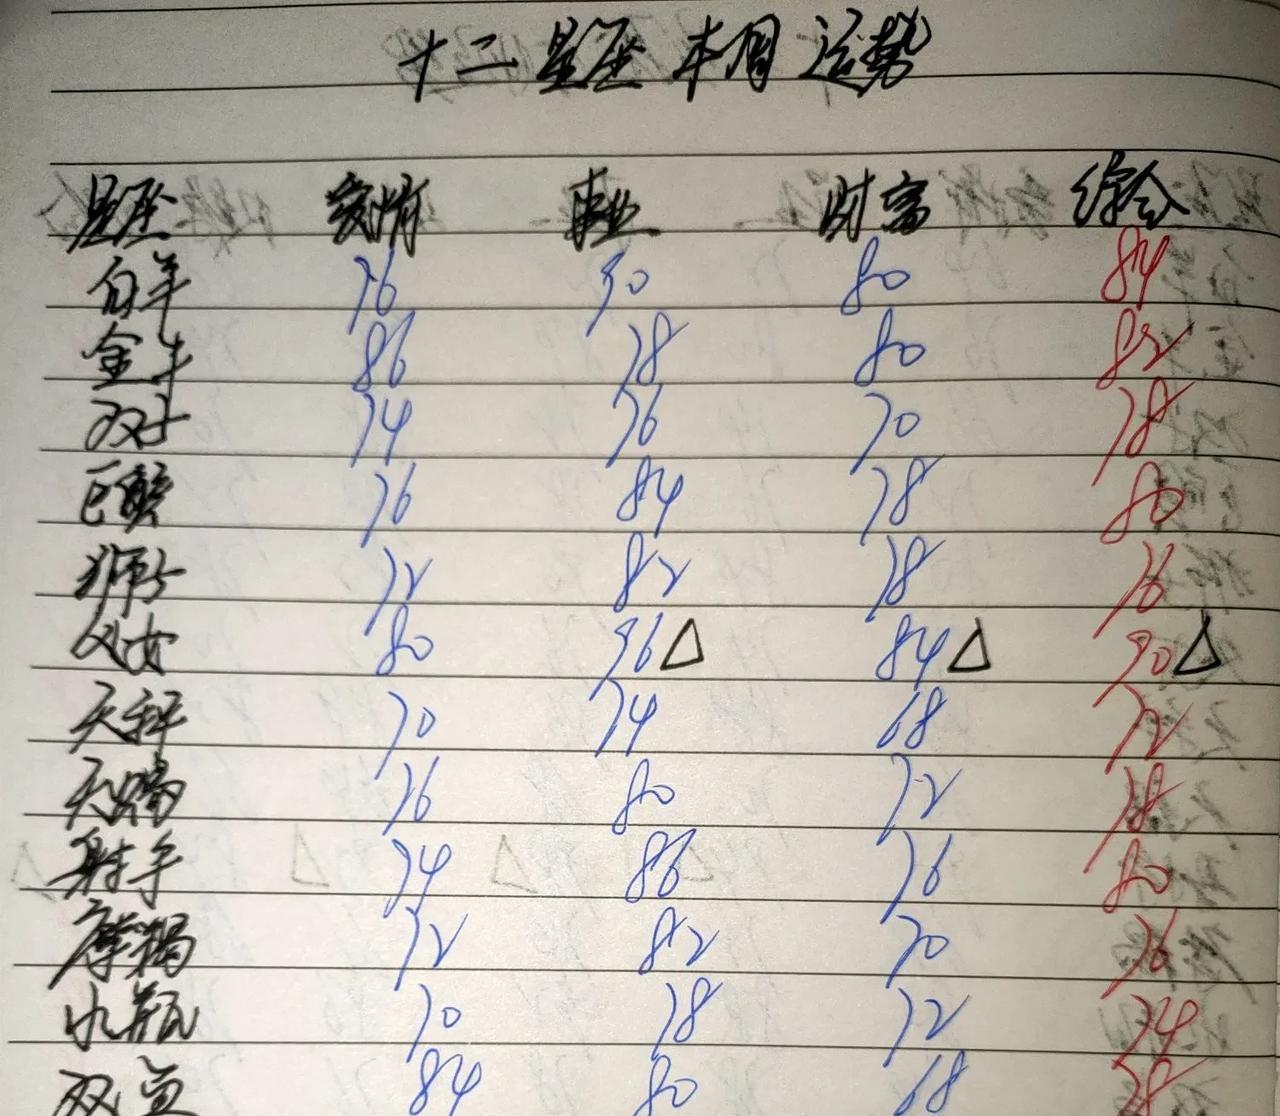 十二星座本月运势
星座 爱情 事业 财富 综合
白羊 76 90 80 84
金牛 86 78 80 82
双子 74 76 70 78
巨蟹 76 84 78 80
狮子 72 82 78 76
处女 80 96△ 84△ 90△
天秤 70 74 68 72
天蝎 76 80 72 78
射手 74 86 76 80
摩羯 72 82 70 76
水瓶 70 78 72 74
双鱼 84 80 68 78